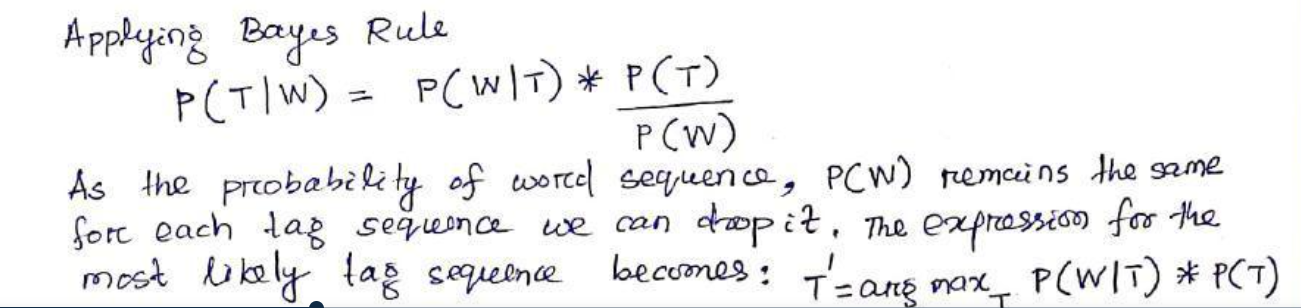 Applying Bayes Rule
P(T|W) = P(W|T) * P(T)
P(W)
As the probability of word sequence, P(W) remains the same
for each tag sequence we can drop it. The expression for the
most likely tag sequence becomes: T' = arg max_T P(W|T) * P(T)